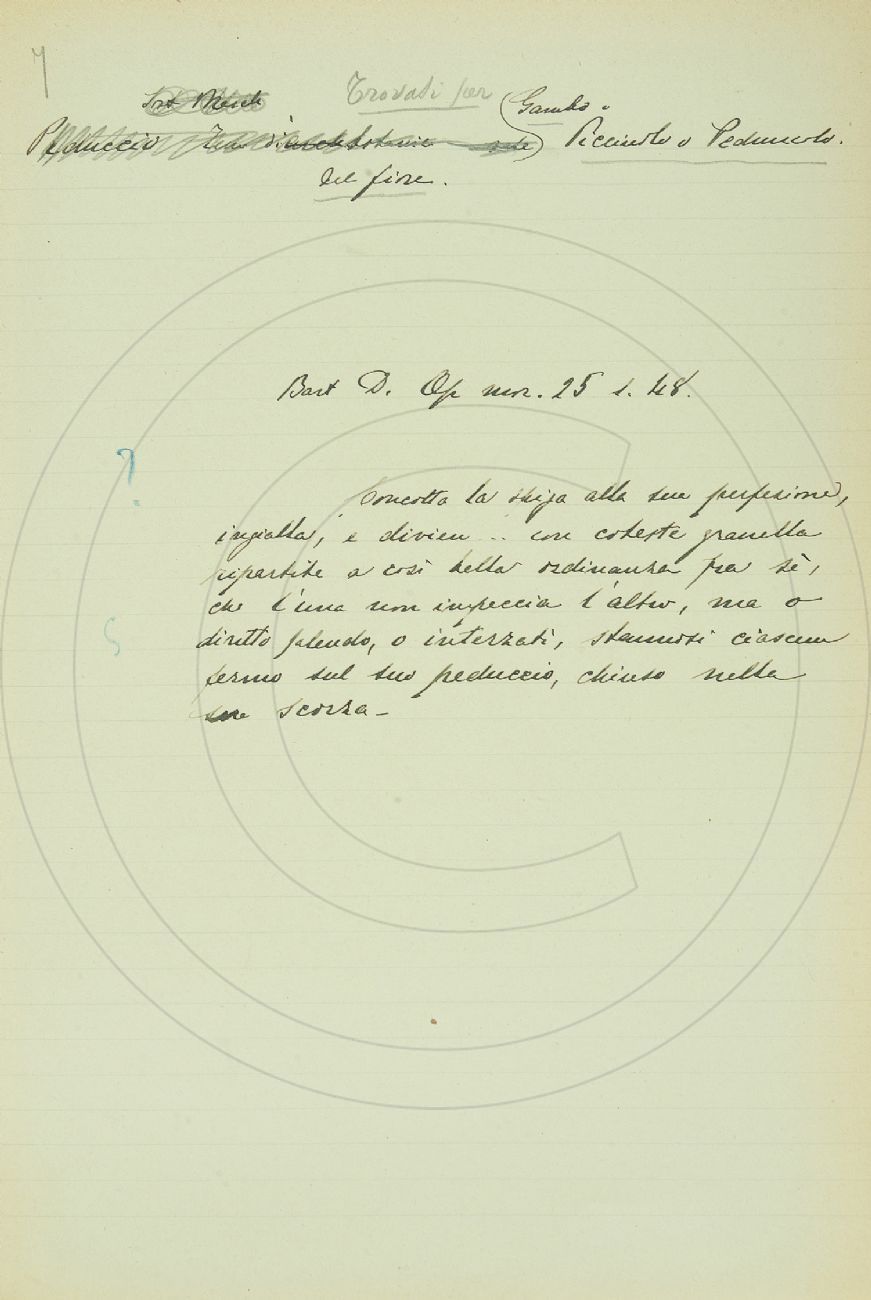 Trovasi per
Gambo o
Peduccio Picciuolo o Peduncolo.
del fiore.
Bart D. Op mor. 25 1. 48.
Concotta la spiga alla sua perfezione,
ingialla, e divien .. con coteste granella
ripartite a così bella ordinanza fra sè,
che l'una non impeccia l'altro, ma o
diritto salendo, o interzati, stannosi ciascun
fermo sul suo peduccio, chiuso nella
sua scorza -
?